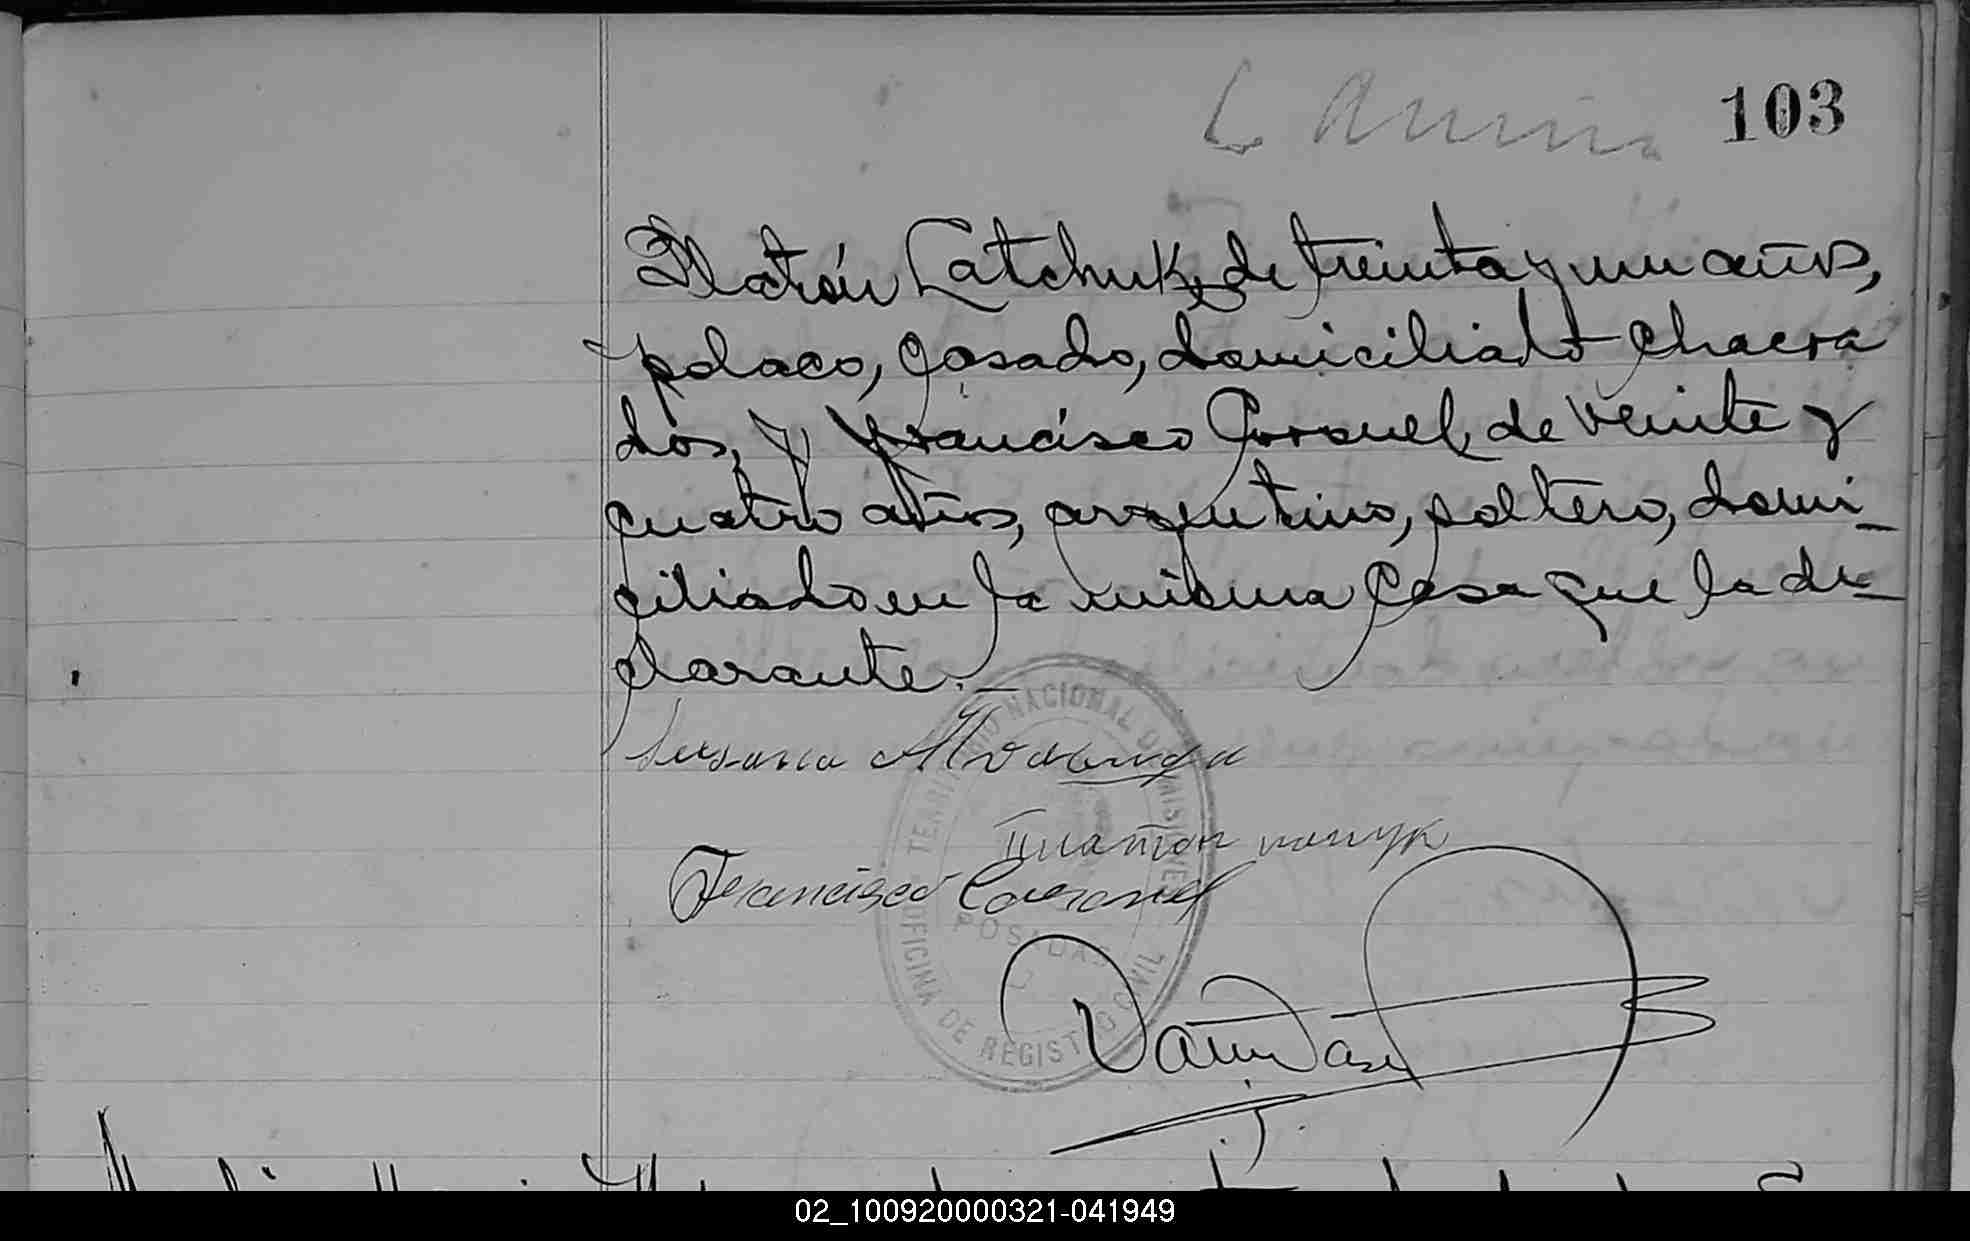 103
Platón Catchuk, de treinta y un años,
polaco, casado, domiciliado chacra
dos, y Francisco Coronel, de veinte y
cuatro años, argentino, soltero, domi-
ciliado en la misma casa que la de-
clarante.-
Susana Alvarenga
Платон
Francisco Coronel
TERRITORIO NACIONAL DE MISIONES
POSADAS
OFICINA DE REGISTRO CIVIL
02_100920000321-041949